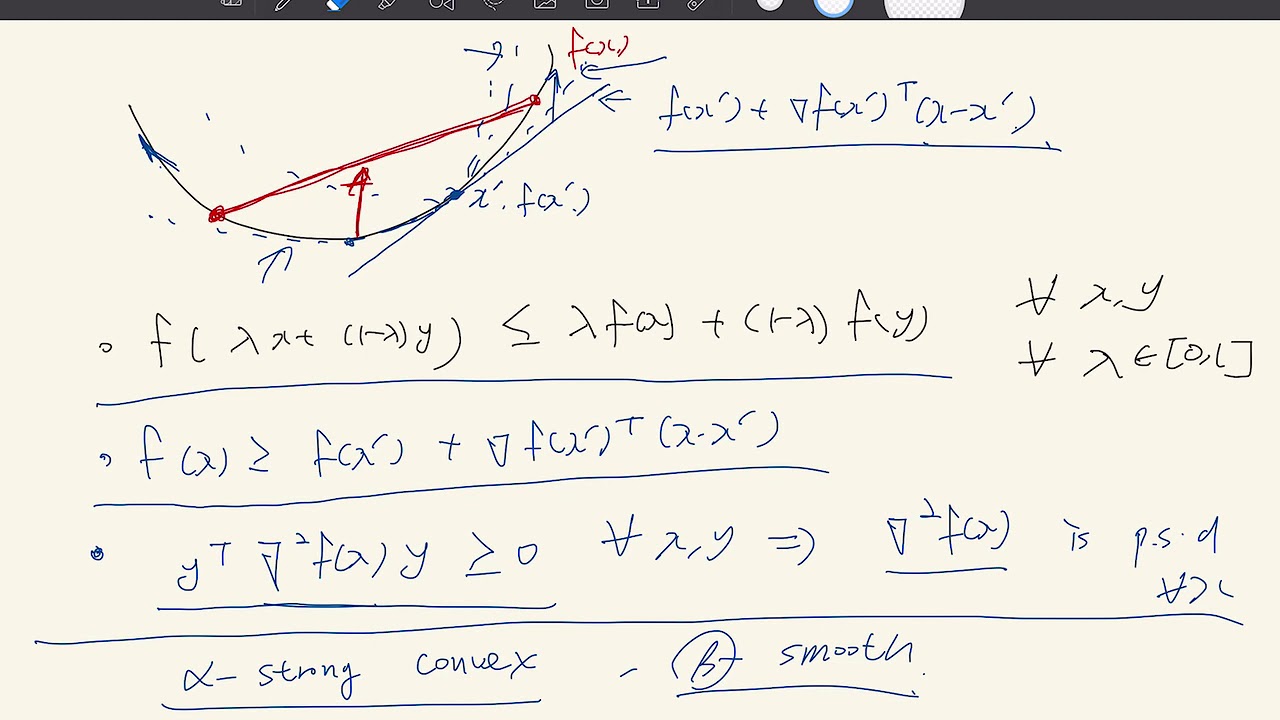 f(x)
f(x') + ∇f(x')ᵀ(x-x')
x', f(x')
f( λx+ (1-λ)y ) ≤ λf(x) + (1-λ) f(y) ∀ x,y
∀ λ∈[0,1]
f(x) ≥ f(x') + ∇f(x')ᵀ(x-x')
yᵀ ∇²f(x) y ≥ 0 ∀ x,y ⇒ ∇²f(x) is p.s.d
∀x
α- strong convex , β- smooth